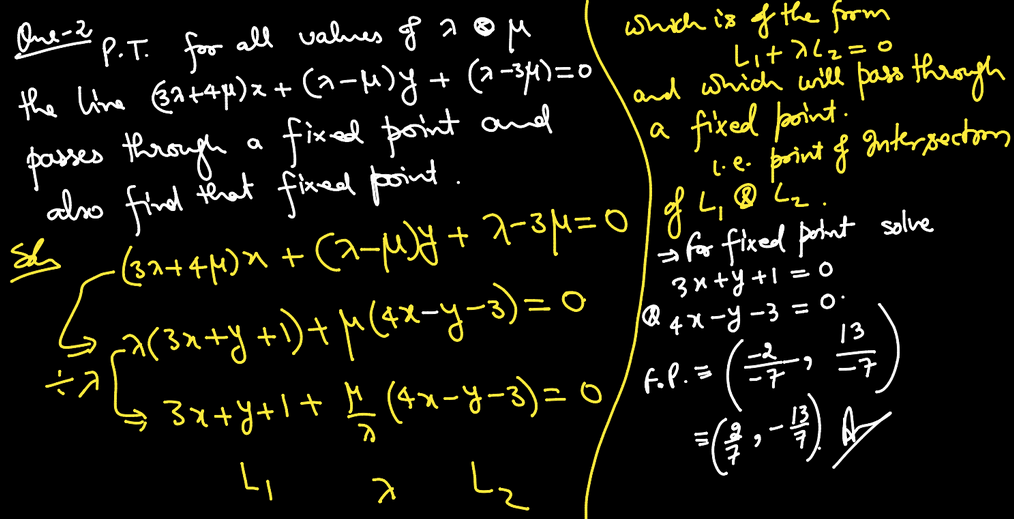 Que-2 P.T. for all values of λ & μ
the line (3λ+4μ)x + (λ-μ)y + (λ-3μ)=0
passes through a fixed point and
also find that fixed point.
Soln (3λ+4μ)x + (λ-μ)y + λ-3μ=0
⇒ λ(3x+y+1)+ μ(4x-y-3)=0
÷λ
⇒ 3x+y+1 + μ/λ (4x-y-3)=0
L1 λ L2
which is of the form
L1+λL2=0
and which will pass through
a fixed point.
i.e. point of Intersection
of L1 & L2.
⇒ For fixed point solve
3x+y+1=0
& 4x-y-3=0.
F.P. ≡ (-2/-7, 13/-7)
≡ (2/7, -13/7). Ar